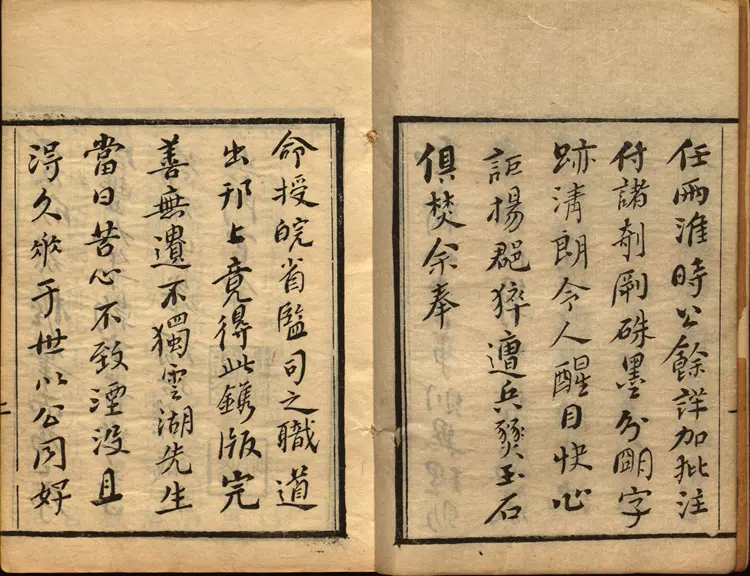 任兩淮時公餘詳加批注
付諸剞劂硃墨分朙字
跡清朗令人醒目快心
詎揚郡猝遭兵燹玉石
俱焚余奉
命授皖省監司之職道
出邗上竟得此鐫版完
善無遺不獨雲湖先生
當日苦心不致湮沒且
得久于世以公同好